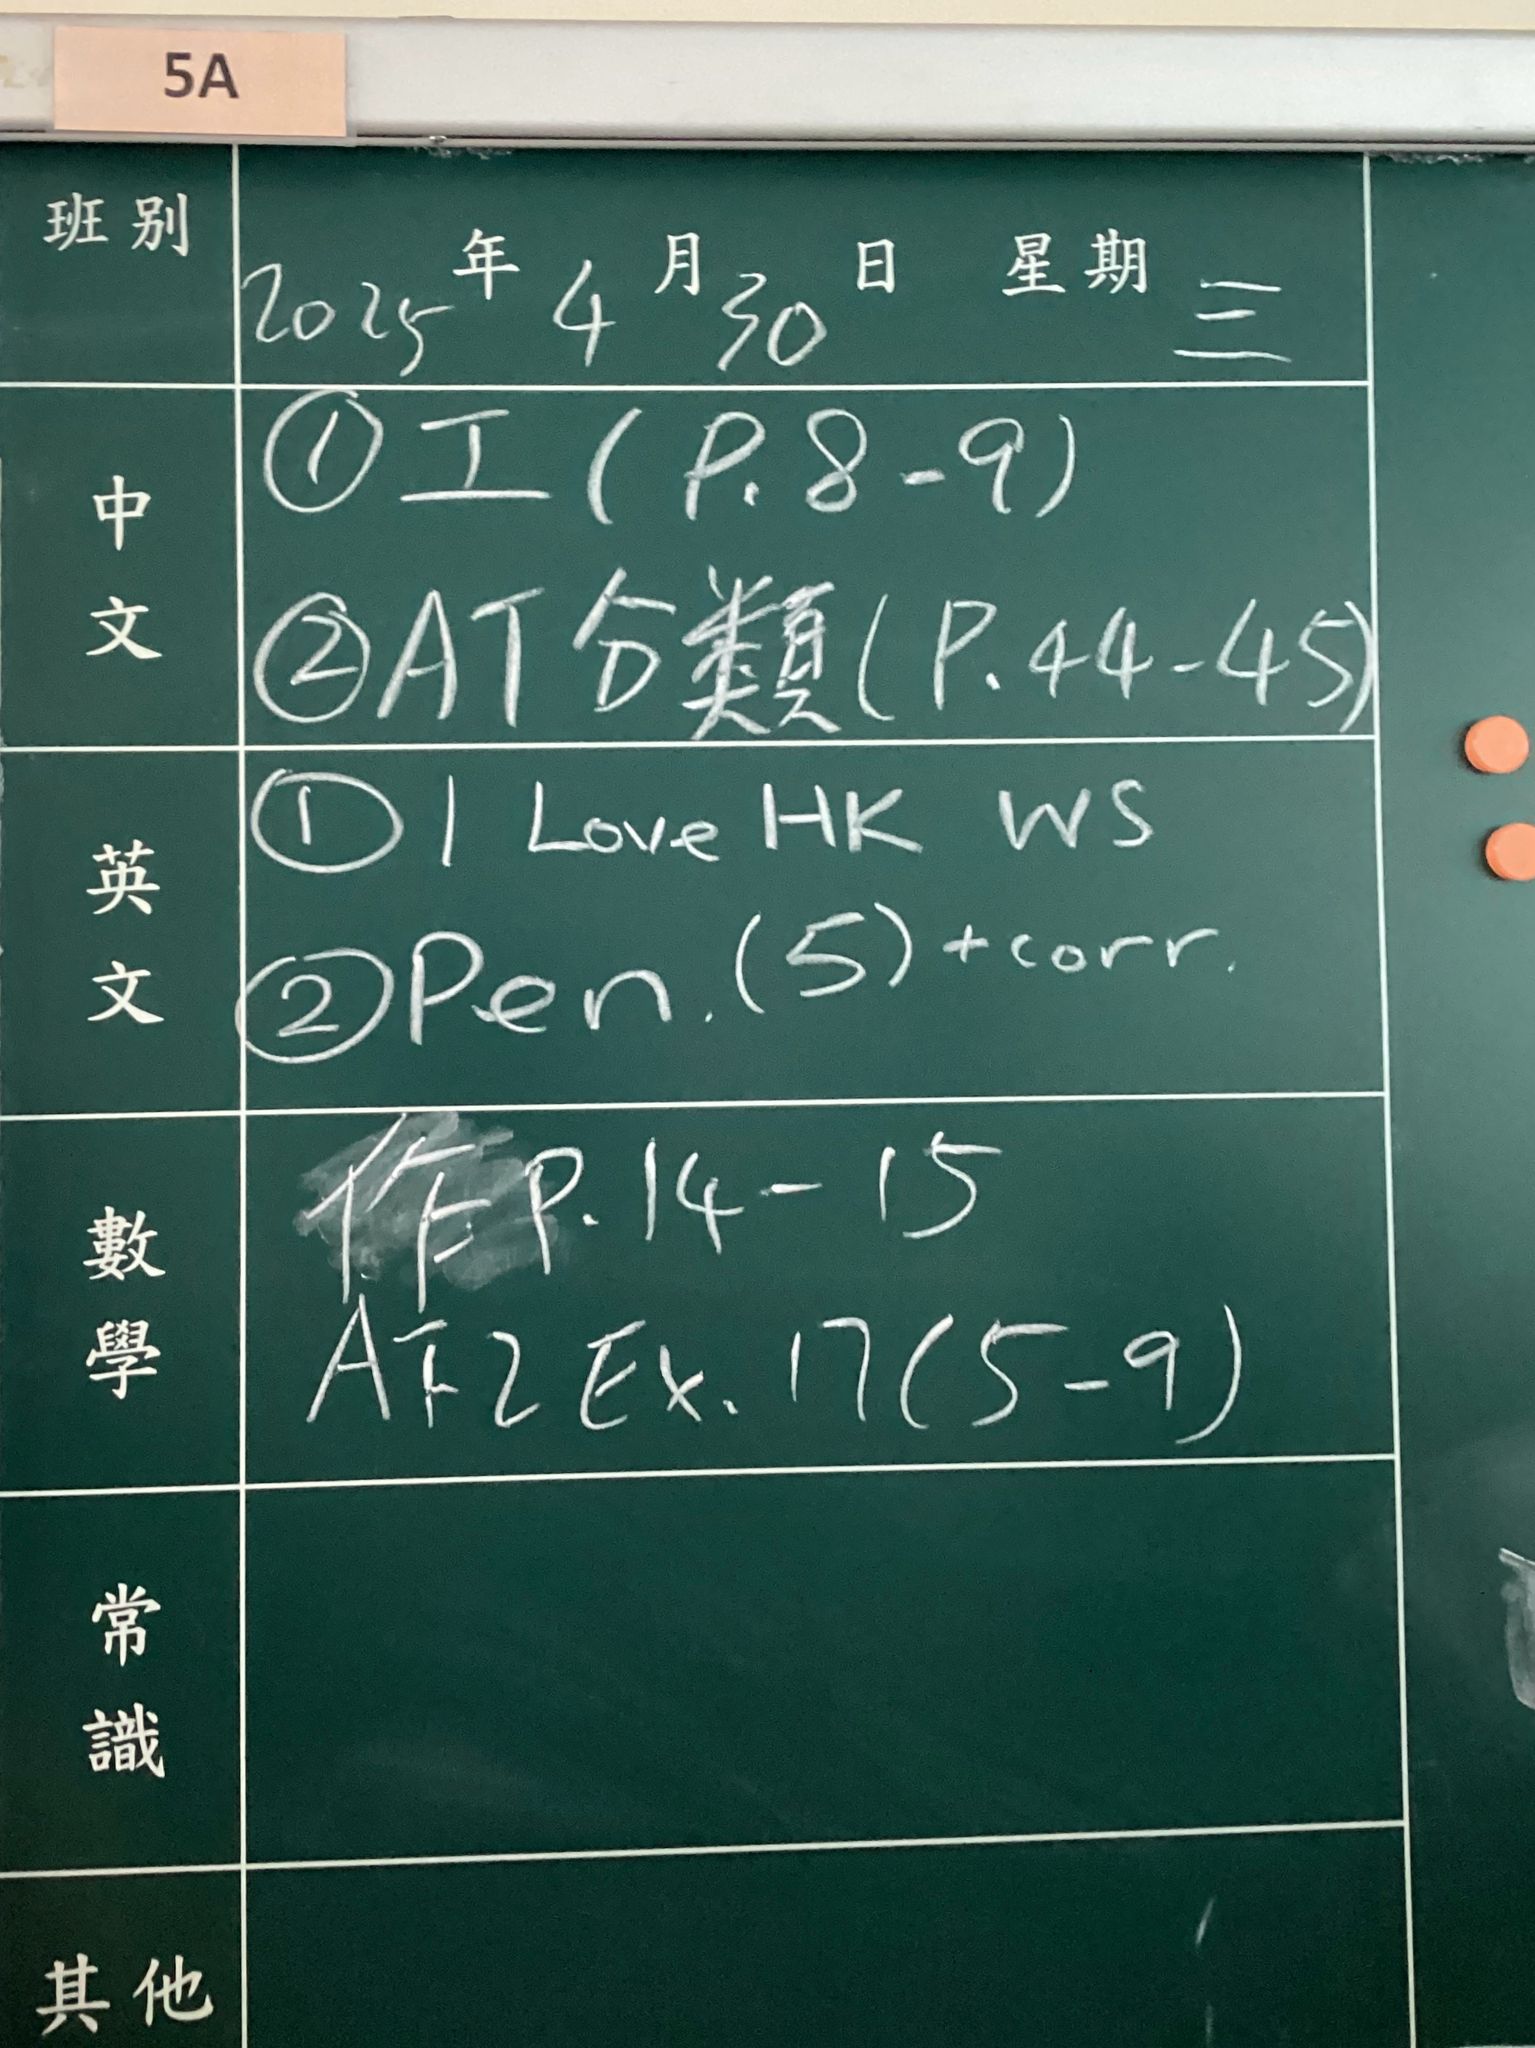 5A
班別
2025年4月30日 星期三
中文
①工(P.8-9)
②AT分類(P.44-45)
英文
①I Love HK WS
②Pen.(5)+corr.
數學
作P.14-15
AT2 Ex.17(5-9)
常識
其他